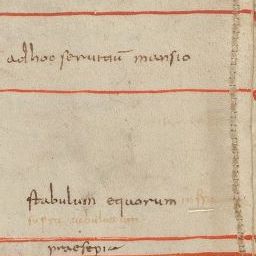 adhoc seruitiū mansio
stabulum equorum infra
supra tabulatum
praesepia